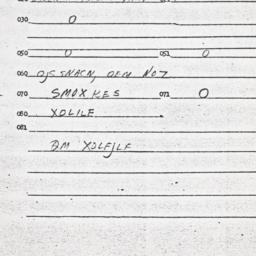 030 O
050 O 051 O
060 OJSSNACN, OEM NOT
070 SMOXKES 071 O
080 XOLILF
081
BM XOLFJLF